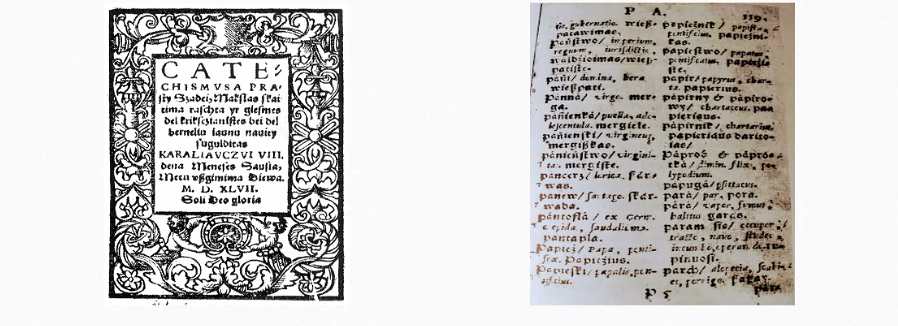 CATE-
CHISMVSA PRA-
sty Szadei, Makslas skai-
tima raschta yr giesmes
del kriksczianistes bei del
berneliu iaunu nauiey
suguldytas
KARALIAVCZVI VIII.
dena Meneses Sausia,
Metu vßgimima Diewa.
M. D. XLVII.
Soli Deo gloria
P A.
119.
gubernatio. wieß-
patawimas.
Páństwo/ imperium,
regnum, iurisdictio.
waldźioimas/wieß-
patiste.
páni/ domina, hera
wießpati.
Pánná/ virgo. mer-
ga.
páńienká/ puella, ado-
lescentula. mergiele.
páńieński/ virgineus,
mergißkas.
pánieństwo/ virgini-
tas. mergiste.
páncerz/ lorica. ßar-
was.
pánew/ sartago. skar-
wada.
pántoflá/ ex Germ.
crepida, sandalium.
pantapla.
Papież/ papa, ponti-
fex. Papiežius.
Papieski/ papalis, pon-
tificius.
papieżnik/ papista,
pontificius. papiežni-
kas.
papiestwo/ papatus,
pontificatus. papiežis-
te.
papir/ papyrus, charta.
papierius.
papirny & pápiro-
wy/ chartaceus. pa-
pierinis.
papirnik/ chartarius
papieriaus dario-
ias/
Páproć & páproć-
ká/ filix, po-
lypodium.
papugá/ psittacus.
pará/ par. pora.
párá/ vapor, fumus,
halitus garas.
param się/ occupor,
tracto, navo, studeo
incumbo, operam
pinuosi.
parch/ alopecia, scabi-
es, porrigo. ßaßas
P 5
para